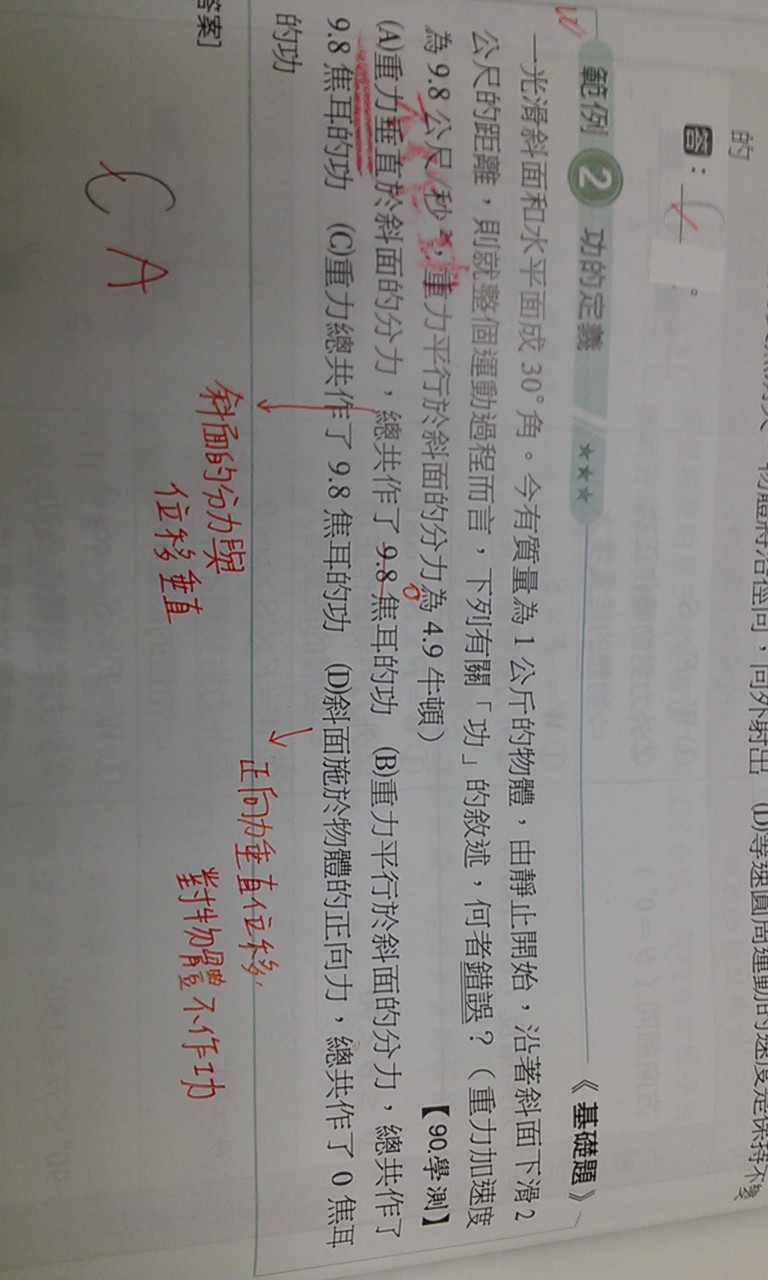 的
答：
物體將沿徑向，向外射出 (D)等速圓周運動的速度定保持不變
範例 2 功的定義 ★★★ 《基礎題》
一光滑斜面和水平面成 30° 角。今有質量為 1 公斤的物體，由靜止開始，沿著斜面下滑 2
公尺的距離，則就整個運動過程而言，下列有關「功」的敘述，何者錯誤？（重力加速度
為 9.8 公尺/秒²，重力平行於斜面的分力為 4.9 牛頓） 【90.學測】
(A)重力垂直於斜面的分力，總共作了 9.8 焦耳的功 (B)重力平行於斜面的分力，總共作了
0
9.8 焦耳的功 (C)重力總共作了 9.8 焦耳的功 (D)斜面施於物體的正向力，總共作了 0 焦耳
的功
斜面的分力與
位移垂直
正向力垂直位移
對物體不作功
C A
答案]